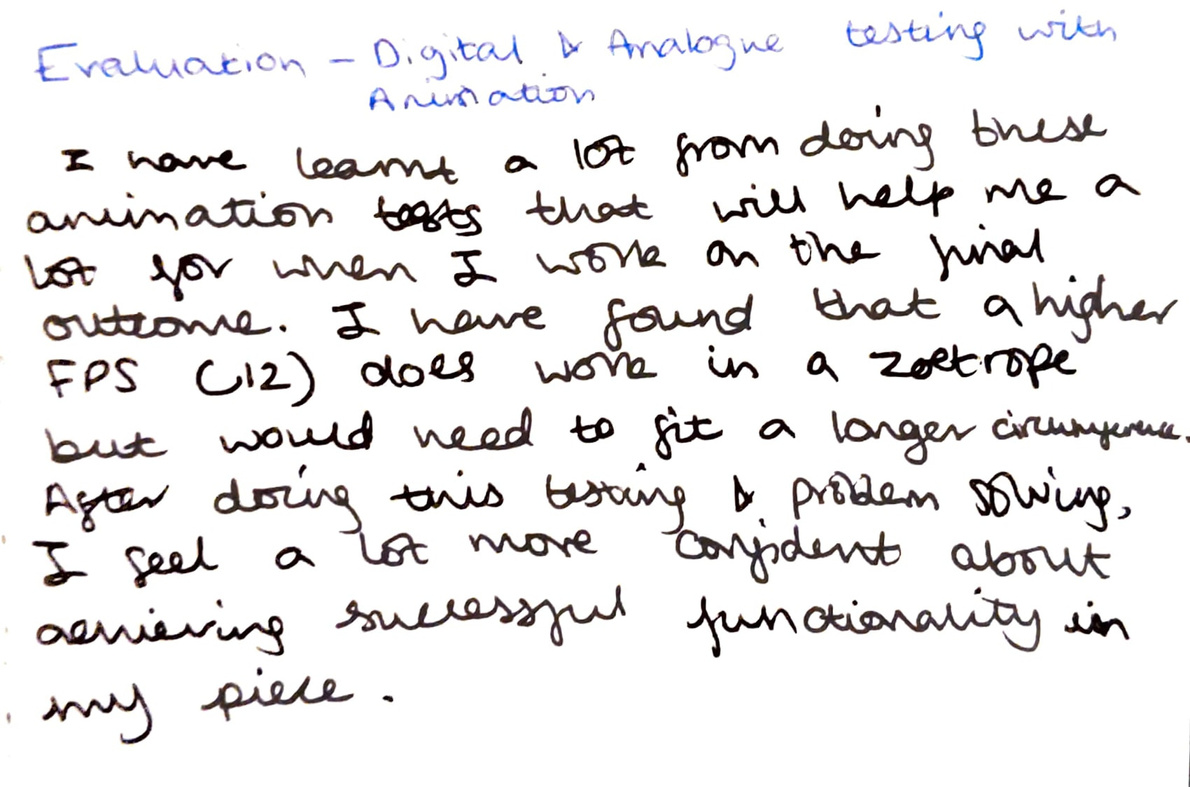 Evaluation - Digital & Analogue testing with
Animation
I have learnt a lot from doing these
animation tests that will help me a
lot for when I work on the final
outcome. I have found that a higher
FPS (12) does work in a zoetrope
but would need to fit a longer circumference.
After doing this testing & problem solving,
I feel a lot more confident about
achieving successful functionality in
my piece.